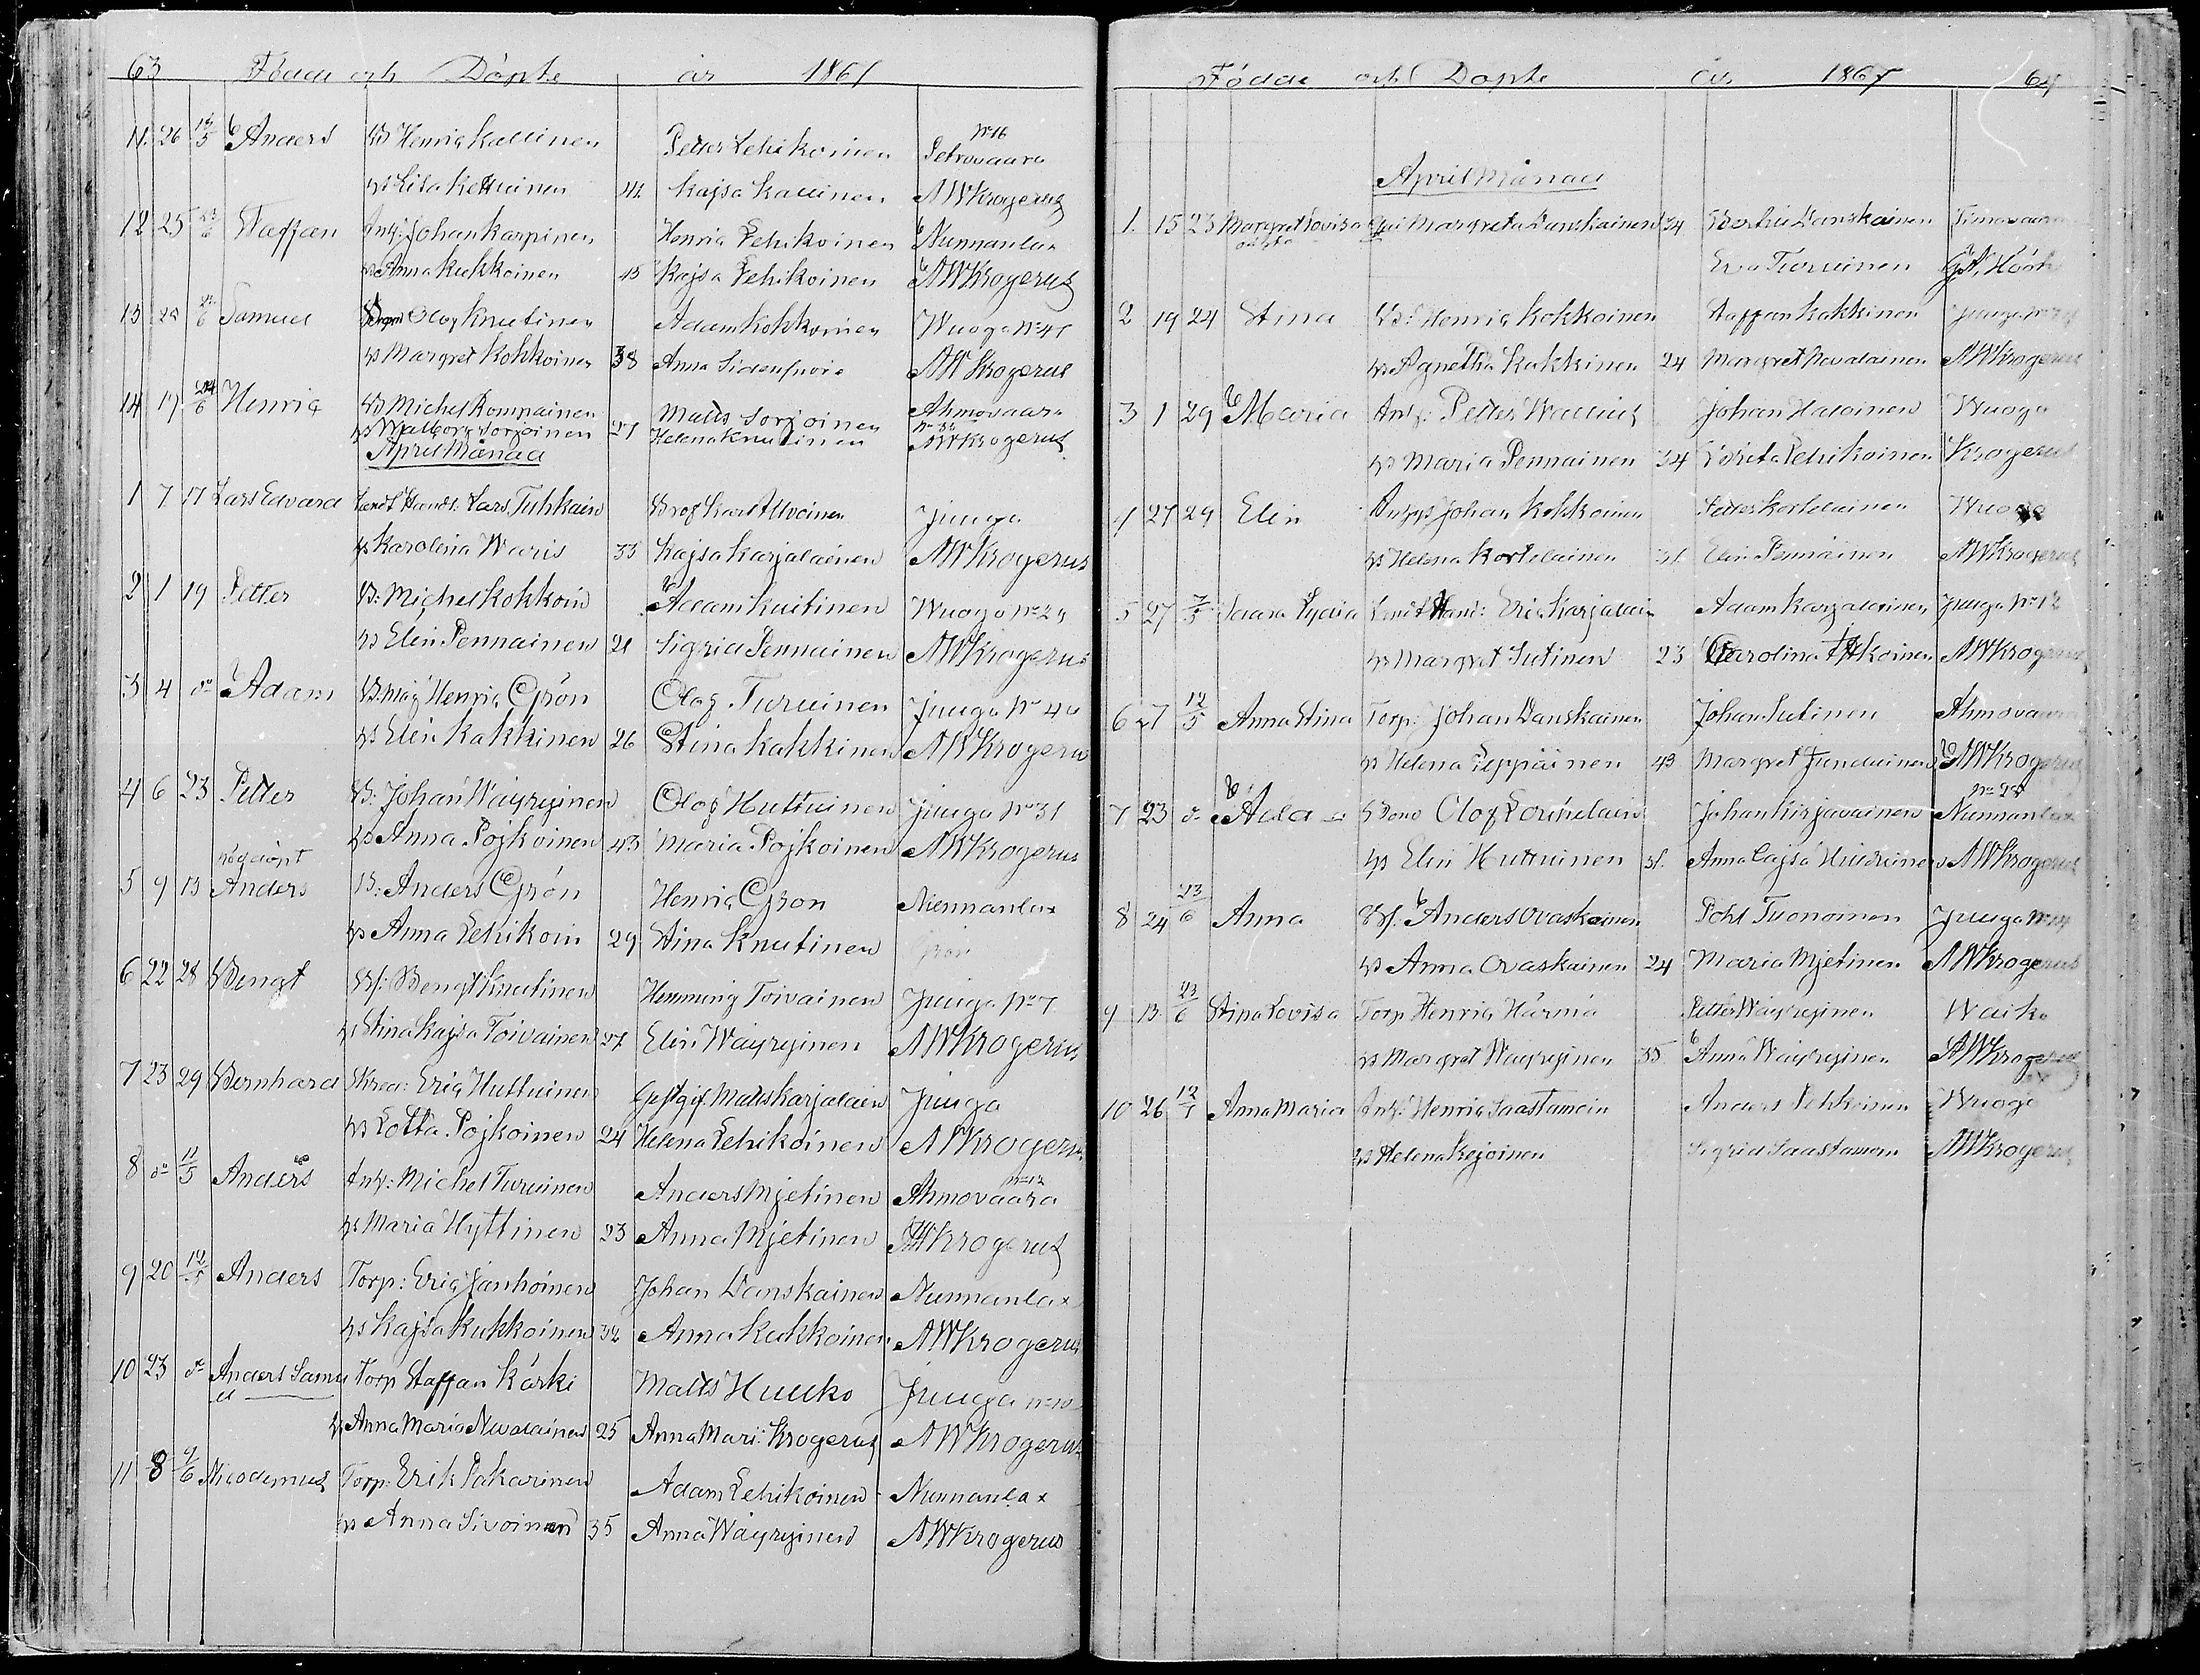 63 Födde och Döpte år 1867
11. 26 12/5 Anders B Henric Kallinen Petter Lehikoinen No 16 Petrovaara
hs Lisa Kettuinen 41 Kajsa Kallinen AWKrogerus
12 25 23/6 Staffan Inh: Johan Karpinen Henric Lehikoinen Nunnanlax
hs Anna Kukkoinen 45 Kajsa Lehikoinen AWKrogerus
13 Samuel Olof Knutinen Adam Kokkoinen Wuogo No 41
hs Margret Kokkoinen 38 Anna AWKrogerus
14 17 24/6 Henric B Michel Romppainen Matts Sorjoinen Ahmovaara
hs Walborg Sorjoinen 27 Helena Knutinen AWKrogerus
April Månad
1 7 17 Lars Edvard Landt Handl: Lars Tuhkain Karl Alvoinen Juuga
hs Karolina Waris 33 Kajsa Karjalainen AWKrogerus
2 1 19 Petter B: Michel Kokkoin Adam Kuitinen Wuogo No 29
hs Elin Pennainen 21 Sigrid Pennainen AWKrogerus
3 4 do Adam B: måg Henric Grön Olof Turuinen Juuga No 40
hs Elin Kakkinen 26 Stina Kakkinen AWKrogerus
4 6 23 Petter B: Johan Wäyryinen Olof Huttuinen Juuga No 31
hs Anna Pojkoinen 43 Maria Pojkoinen AWKrogerus
nöddöpt
5 9 13 Anders B: Anders Grön Henric Grön Nunnanlax
hs Anna Lehikoin 29 Stina Knutinen Grön
6 22 28 Bengt Bf: Bengt Knutinen Hemming Toivainen Juuga No 7
hs Stina Kajsa Toivainen 27 Elin Wäyryinen AWKrogerus
7 23 29 Bernhard Skred: Eric Huttuinen Gästgif. Matts Karjalain Juuga
hs Lotta Pojkoinen 24 Helena Lehikoinen AWKrogerus
8 do 12/5 Anders Inh: Michel Turuinen Anders Mjetinen No 12 Ahmovaara
hs Maria Hyttinen 23 Anna Mjetinen AWKrogerus
9 20 12/5 Anders Torp: Eric Janhoinen Johan Danskainen Nunnanlax
hs Kajsa Kukkoinen 32 Anna Kukkoinen AWKrogerus
10 23 do Anders Samu Torp Staffan Kärki Matts Huuko Juuga No 10
el hs Anna Maria Nevalainen 25 Anna Mari: Krogerus AWKrogerus
11 8 9/6 Nicodemus Torp: Erik Pakarinen Adam Lehikoinen Nunnanlax
hs Anna Sivoinen 35 Anna Wäyryinen AWKrogerus
Födde och Döpte år 1867 64
April Månad
1. 15 23 Margret Lovisa Margreta Danskainen 34 Bertil Danskainen Timovaara
oäkta Eva Turuinen Höök
2 19 24 Stina B: Henric Kokkoinen Staffan Kakkinen Juuga
hs Agnetha Kakkinen 24 Margret Nevalainen AWKrogerus
3 1 29 Maria Inh: Petter Wallius Johan Haloinen Wuogo
hs Maria Pennainen 34 Brita Lehikoinen Krogerus
4 27 29 Elin Johan Kokkoinen Petter Kortelainen Wuogo
hs Helena Kortelainen 31 Elin Pennainen AWKrogerus
5 27 7/5 Saara Lydia Landt Hand: Eric Karjalain Adam Karjalainen Juuga No 12
hs Margret Sutinen 23 Carolina AWKrogerus
6 27 12/5 Anna Stina Torp: Johan Danskainen Johan Sutinen Ahmovaara
hs Helena Leppäinen 43 Margret AWKrogerus
7 23 do Aida Olof Johan Kirjavainen No 28 Nunnanlax
hs Elin Huttuinen 31. Anna Cajsa AWKrogerus
8 24 23/6 Anna Bf: Anders Ovaskainen Pohl Tuonoinen Juuga
hs Anna Ovaskainen 24 Maria Mjetinen AWKrogerus
9 13 23/6 Stina Lovisa Torp Henric Härmä Petter Wäyryinen Waiko
hs Margret Wäyryinen 35 Anna Wäyryinen AWKrogerus
10 26 Anna Maria Inh: Henric Saastamoin Anders Wuogo
hs Helena Kejoinen Sigrid Saastamoin AWKrogerus